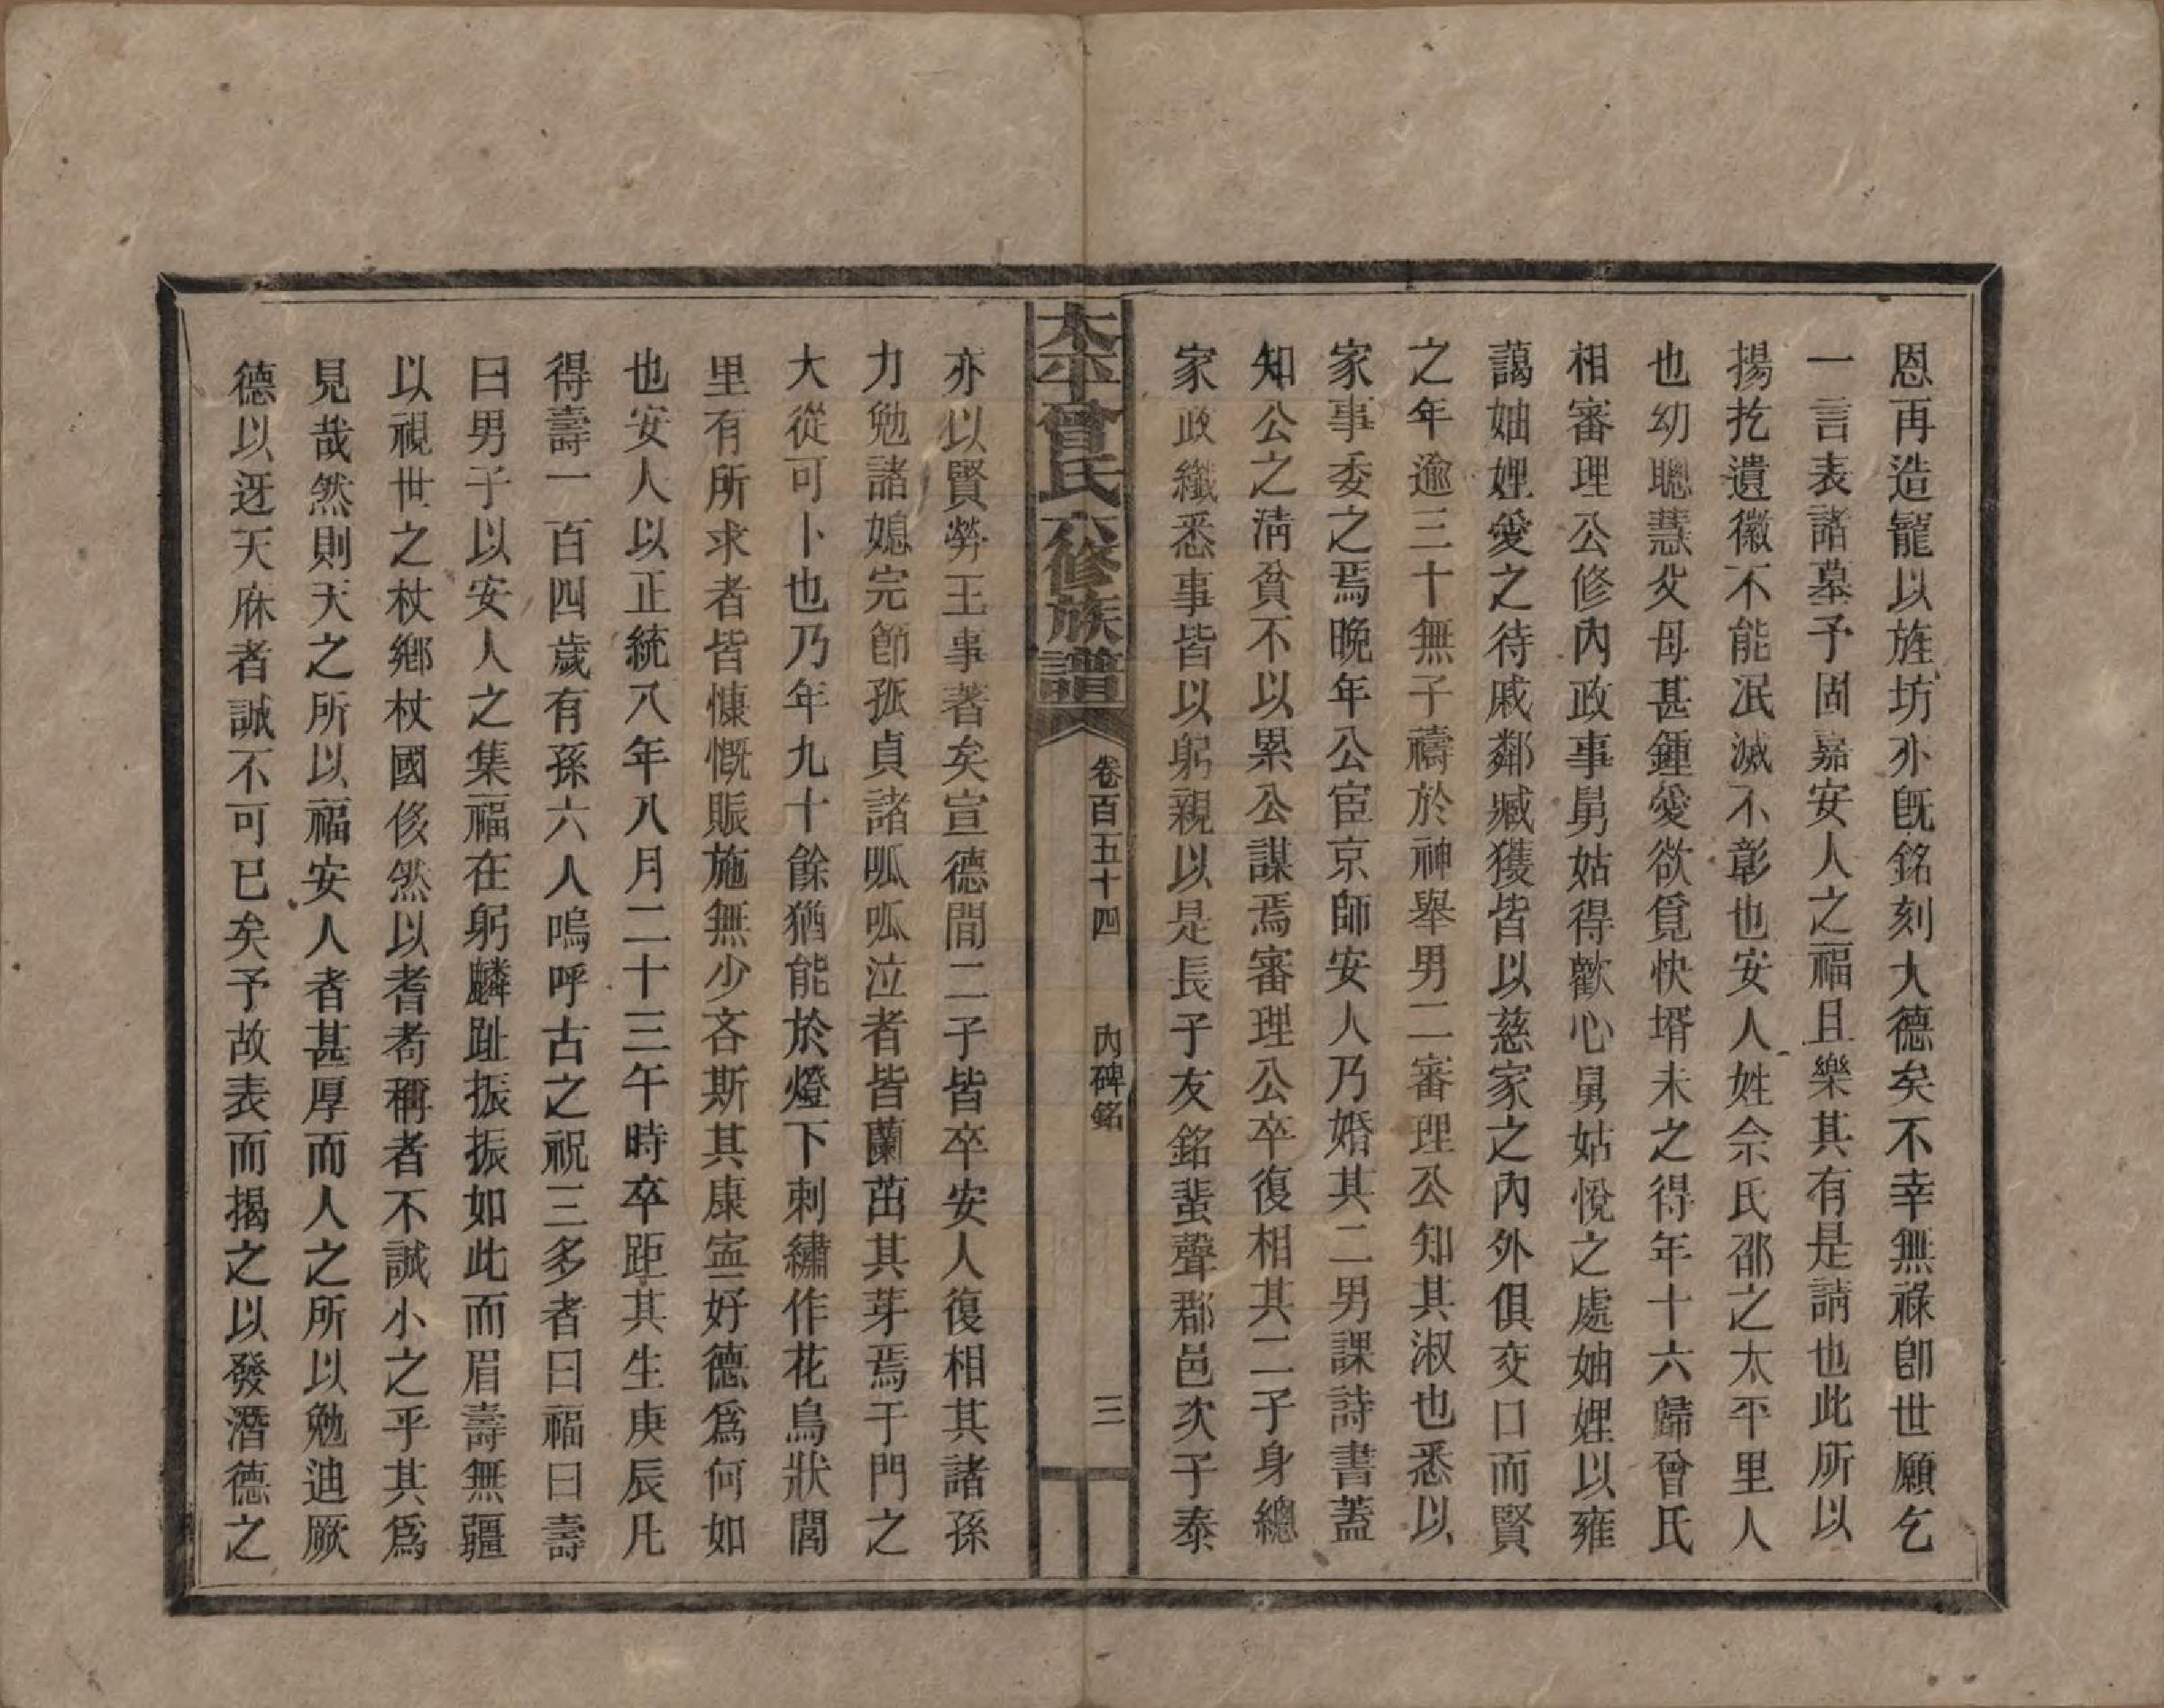 恩再造寵以旌坊亦既銘刻大德矣不幸無祿卽世願乞
一言表諸墓予固嘉安人之福且樂其有是請也此所以
揚扢遺徽不能泯滅不彰也安人姓佘氏邵之太平里人
也幼聰慧父母甚鍾愛欲覓快壻未之得年十六歸曾氏
相審理公修內政事舅姑得歡心舅姑悅之處妯娌以雍
藹妯娌愛之待戚鄰臧獲皆以慈家之內外俱交口而賢
之年逾三十無子禱於神舉男二審理公知其淑也悉以
家事委之焉晩年公宦京師安人乃婚其二男課詩書蓋
知公之淸貧不以累公謀焉審理公卒復相其二子身總
家政纖悉事皆以躬親以是長子友銘蜚聲郡邑次子泰
太平曾氏六修族譜
卷百五十四
內碑銘
三
亦以賢勞王事著矣宣德間二子皆卒安人復相其諸孫
力勉諸媳完節孤貞諸呱呱泣者皆蘭茁其芽焉于門之
大從可卜也乃年九十餘猶能於燈下刺繡作花鳥狀閭
里有所求者皆慷慨賑施無少吝斯其康寍好德爲何如
也安人以正統八年八月二十三午時卒距其生庚辰凡
得壽一百四歲有孫六人嗚呼古之祝三多者曰福曰壽
曰男子以安人之集福在躬麟趾振振如此而眉壽無疆
以視世之杖鄕杖國侅然以耆耇稱者不誠小之乎其爲
見哉然則天之所以福安人者甚厚而人之所以勉迪厥
德以迓天庥者誠不可已矣予故表而揭之以發潛德之